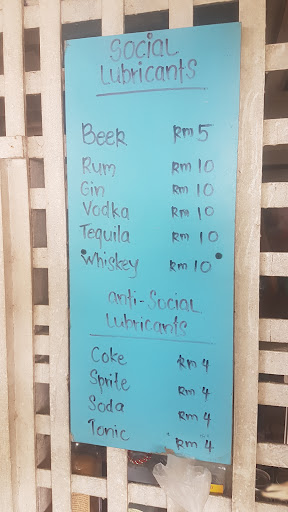 Social
Lubricants
Beer Rm 5
Rum Rm 10
Gin Rm 10
Vodka Rm 10
Tequila Rm 10
Whiskey Rm 10
anti-Social
Lubricants
Coke Rm 4
Sprite Rm 4
Soda Rm 4
Tonic Rm 4